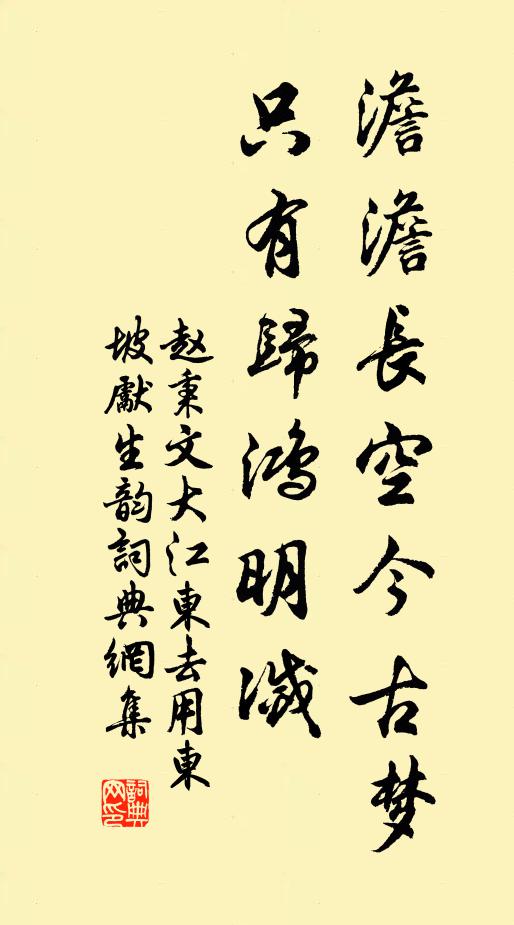 澹澹長空今古梦
只有歸鴻明滅
赵秉文大江東去用東
坡獻生韵詞典網集
詞典網印